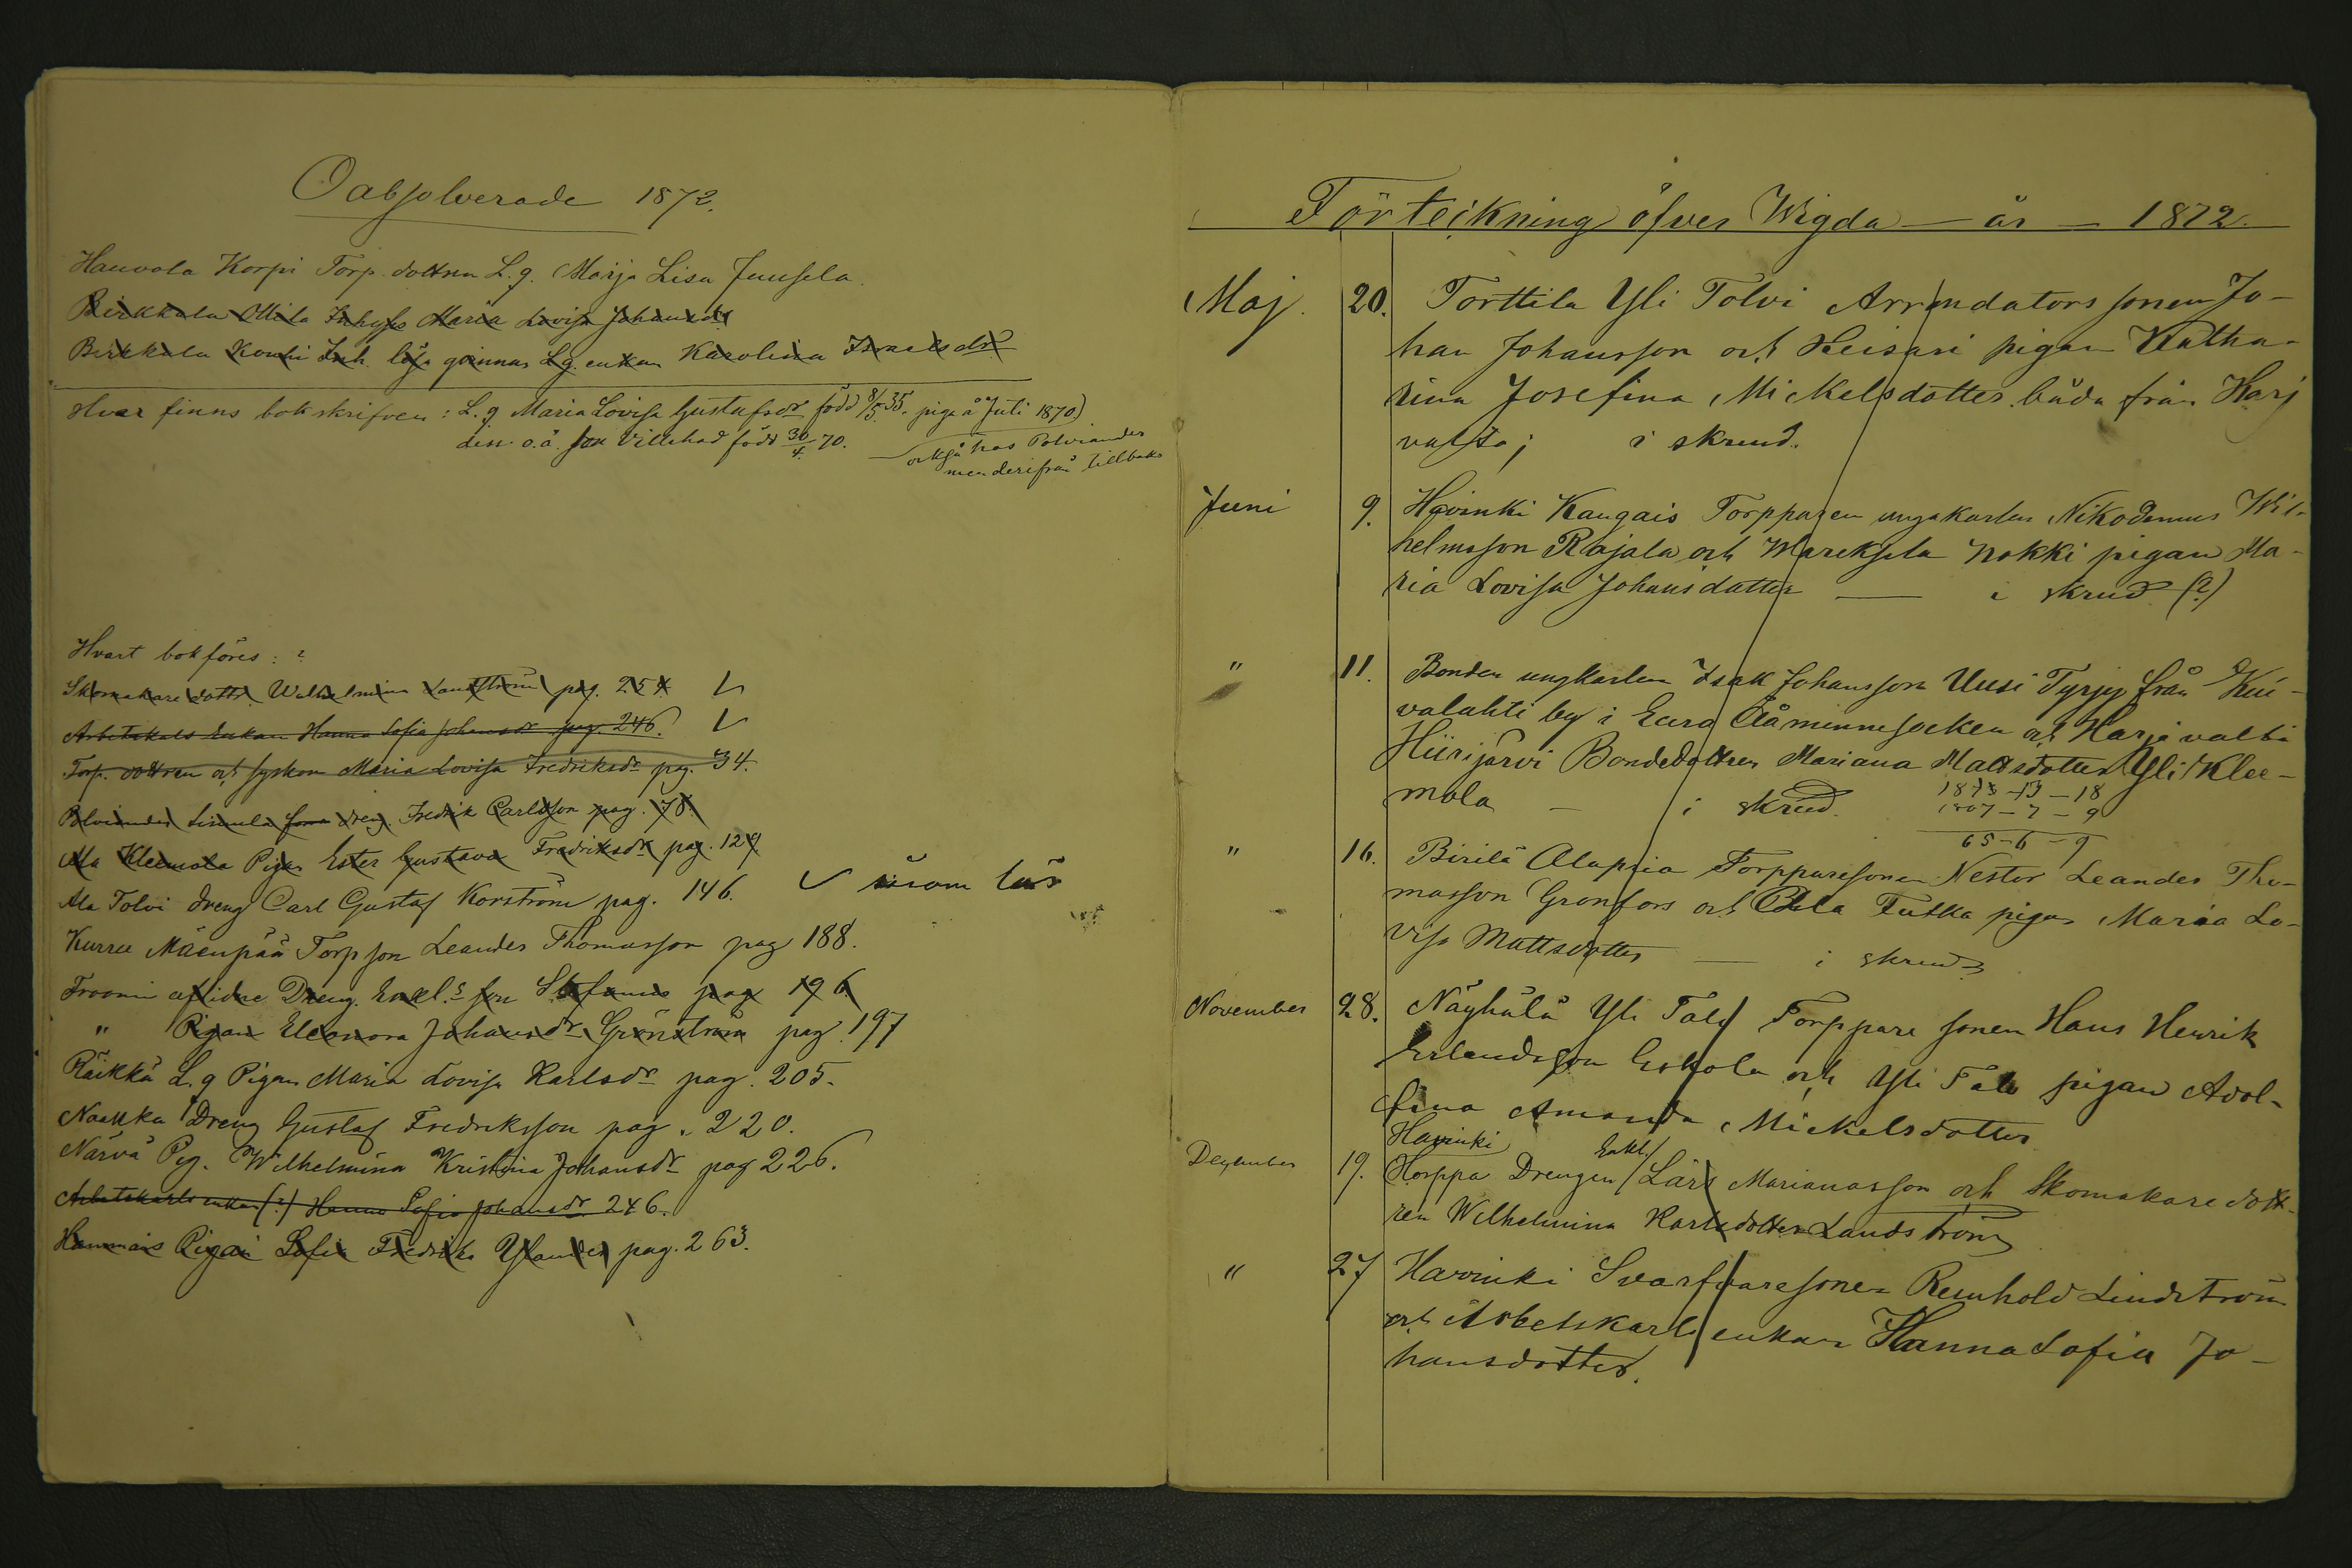 Oabsolverade 1872.
Hauvola Korpi Torp. dottren L. q. Maija Lisa Juusela.
Birkkala Ollila Inhyses Maria Lovisa Johansdr
Birkkala Kouhi Inh. lösa qvinnan Lg. enkan Karolina Israelsdr
Hvar finns bokskrifven : L. q Maria Lovisa Gustafsdr född 8/5 35. piga å Juli 1870.)
dess o.ä. son Villehad född 30/4. 70.
också hos Polviander
men derifrån tillbaka
Hvart bokföres : ?
Skomakare dottr. Wilhelmina Landström pag. 254
Arbetskarls Enkan Hanna Sofia Johansdr pag. 246.
Torp. dottren och syskon Maria Lovisa Fredriksdr pag. 34.
Polviander Simula dreng Fredrik Carlsson pag. 78.
Ala Kleemola Pigan Ester Gustava Fredriksdr pag. 129
Ala Tolvi dreng Carl Gustaf Korström pag. 146.
Kurru Mäenpää Torp son Leander Thomasson pag 188.
Froomi aflidne Dreng. Enkl.s son Stefanus pag 196.
" Pigan Eleonora Johansdr Grönström pag. 197
Räikkä L. q Pigan Maria Lovisa Karlsdr pag. 205.
Naukka Dreng Gustaf Fredriksson pag. 220.
Närvä Pig. Wilhelmina Kristina Johansdr pag 226.
Arbetskarls enkan (?) Hanna Sofia Johansdr 246.
Hammais Pigan Sofia Fredrika Ylander pag. 263.
Förteckning öfver Wigda — år — 1872.
Maj. 20. Torttila Yli Tolvi Arrendators sonen Jo-
han Johansson och Heisari pigan Katha-
rina Josefina Mickelsdotter båda från Harj
valta; i skrud.
Juni 9. Havinki Kaugais Torpparen ungkarlen Nikodemus Wil-
helmsson Rajala och Mareksela Nokki pigan Ma-
ria Lovisa Johansdotter — i skrud (?)
" 11. Bonden ungkarlen Isak Johansson Uusi Tyrjy från Kui-
valahti by i Eura Åminne socken och Harjavalta
Hiirijärvi Bondedottren Mariana Mattsdotter Yli Klee-
mola — i skrud.
1873 - 13 - 18
1807 - 7 - 9
65 - 6 - 9
" 16. Birilä Torpparesonen Nestor Leander Tho-
masson Gronfors och pigan Maria Lo-
visa Mattsdotter — i skrud
November 28. Näyhälä Yli Talo Torppare sonen Hans Henrik
Erlandsson Eskola och Yli Talo pigan Adol-
fina Amanda Mickelsdotter
Havinki
December 19. Horppa Drengen Enkl. Lars Marianasson och Skomakaredott-
ren Wilhelmina Karlsdotter Landström
" 27 Havinki Svarfvaresonen Reinhold Lindström
och Arbetskarls enkan Hanna Sofia Jo-
hansdotter.